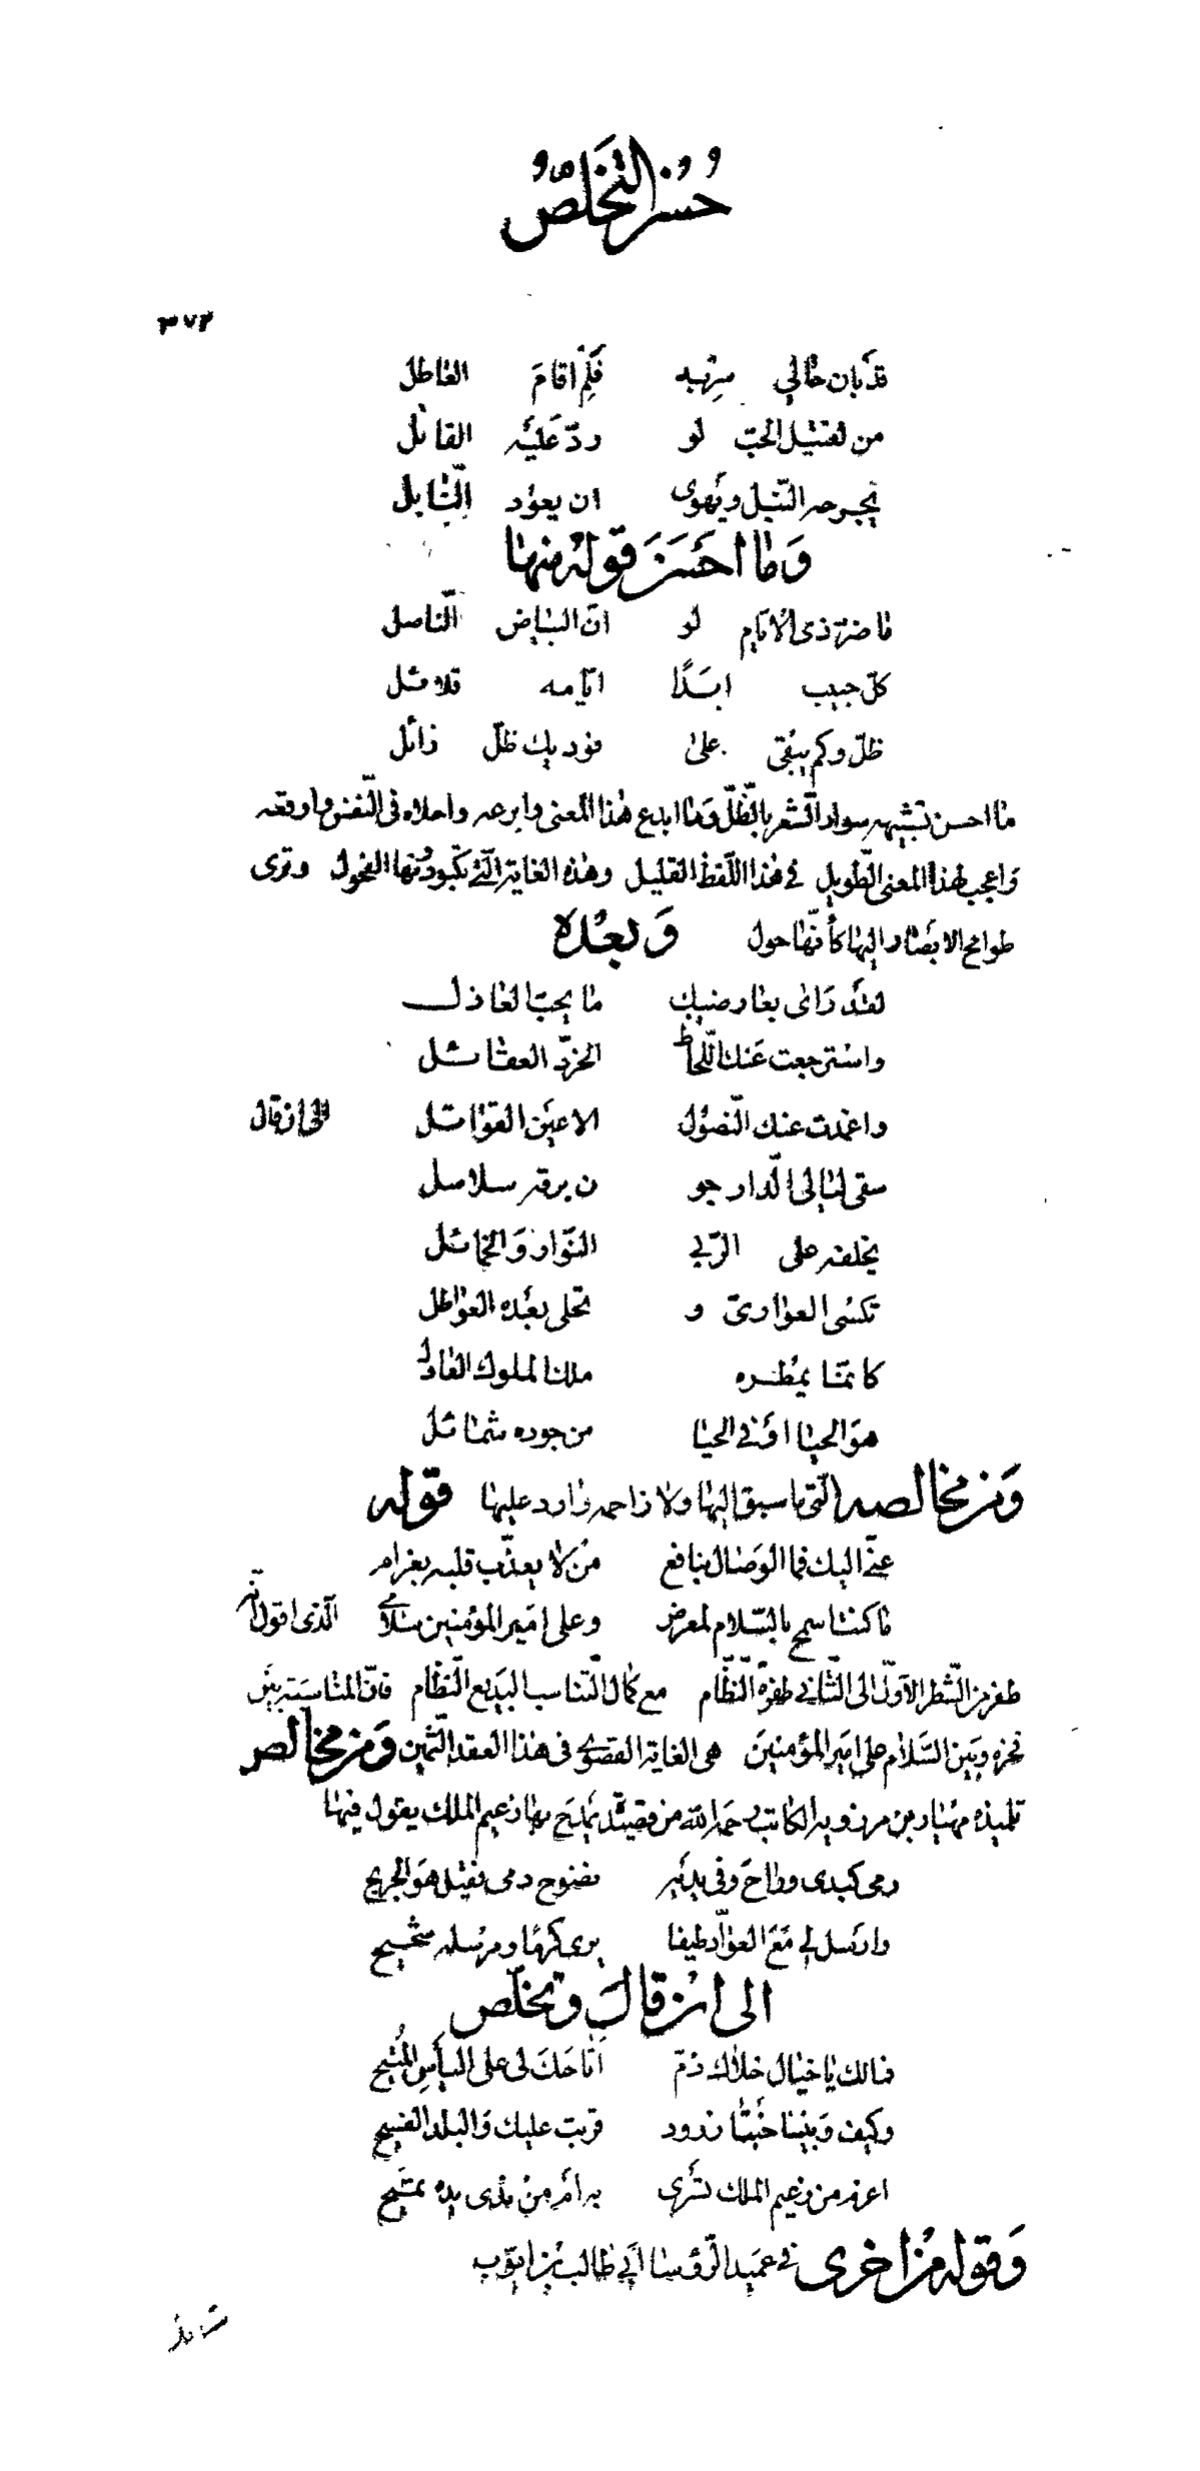 حُسْنُ التَّخَلُّصُ
٣٧٢
قد بان حالي سربه فَلِمْ اقامَ العاطل
من لقتيل الحبّ لو ردّ عَليْه القاتل
يجرحه النّبل ويَهوى ان يعوْد النّابل
وَمَا احْسَنَ قوله منها
ما ضرّ ذى الايّام لو انّ البياض النّاصل
كلّ حبيب ابدًا ايّامه قلائل
ظلّ وكم يبْقى على فوديك ظلّ زائل
ما احسن تشبيهه سواد الشّعر بالظّلّ وما ابدع هذا المعنى وابرعه واحلاه فى النّفس واوقعه
واعجب لهذا المعنى الطّويل في هذا اللّفظ القليل وهذه الغاية الّتي تكبو دونها الفحول وترى
طوامح الابصار اليها كأنّها حول وَبعْدَه
لقد رَاى بعارضيك ما يحبّ العاذل
واسْترجعت عَنك اللّحاظ الخرّد العقائل
واغمدت عنك النّصول الاعين القواتل الى ان قال
سقى ليالى الدّار جو ن برقه سلاسل
يخلفه على الرّبي النّوار وَالخمائل
تكسْى العوارىّ و تحلى بعْده العواطل
كانّما يمْطره ملك الملوك العادل
هوَ الحيا اوْ في الحيا من جوده شمائل
وَمن مخالصه الّتى ما سبق اليها ولا زاحمه وارد عليها قوله
عنّي اليك فما الوصال بنافع مَن لا يعذّب قلبه بغرام
ما كنت اسمح بالسّلام لمعرض وعلى امير المؤمنين سلامي الّذى اقول انّه
طفر من الشّطر الاوّل الى الثّاني طفرة النّظّام مع كمال التّناسب البديع النّظام فانّ المناسبة بين
نحره وبَين السَّلام على امَير المؤمنينَ هى الغاية القصوى فى هذا العقد الثّمين وَمن مخالص
تلميذه مهيار بن مرزويه الكاتب رحمه الله من قصيدة يمدح بها زعيم الملك يقول فيها
رمى كبدى وراحَ وفى يديْه نضوح دمى فقيل هوَ الجريح
وارْسل لي مَعَ العوّاد طيفا يرى كرمًا ومرْسله شحيح
الى انْ قالَ وتخلّص
فما لك يا خيال خلاك ذمّ اَتَاحَكَ لى على اليأسِ المُتيح
وكيف وبَيننا خبْتا زرود قربت عليك وَالبلد الفسيح
اعزم من زعيم الملك تسْرى به ام من ندى يده تميح
وَقوله منْ اخرى في عَميد الرّؤسا ابي طالب بْن ايّوب